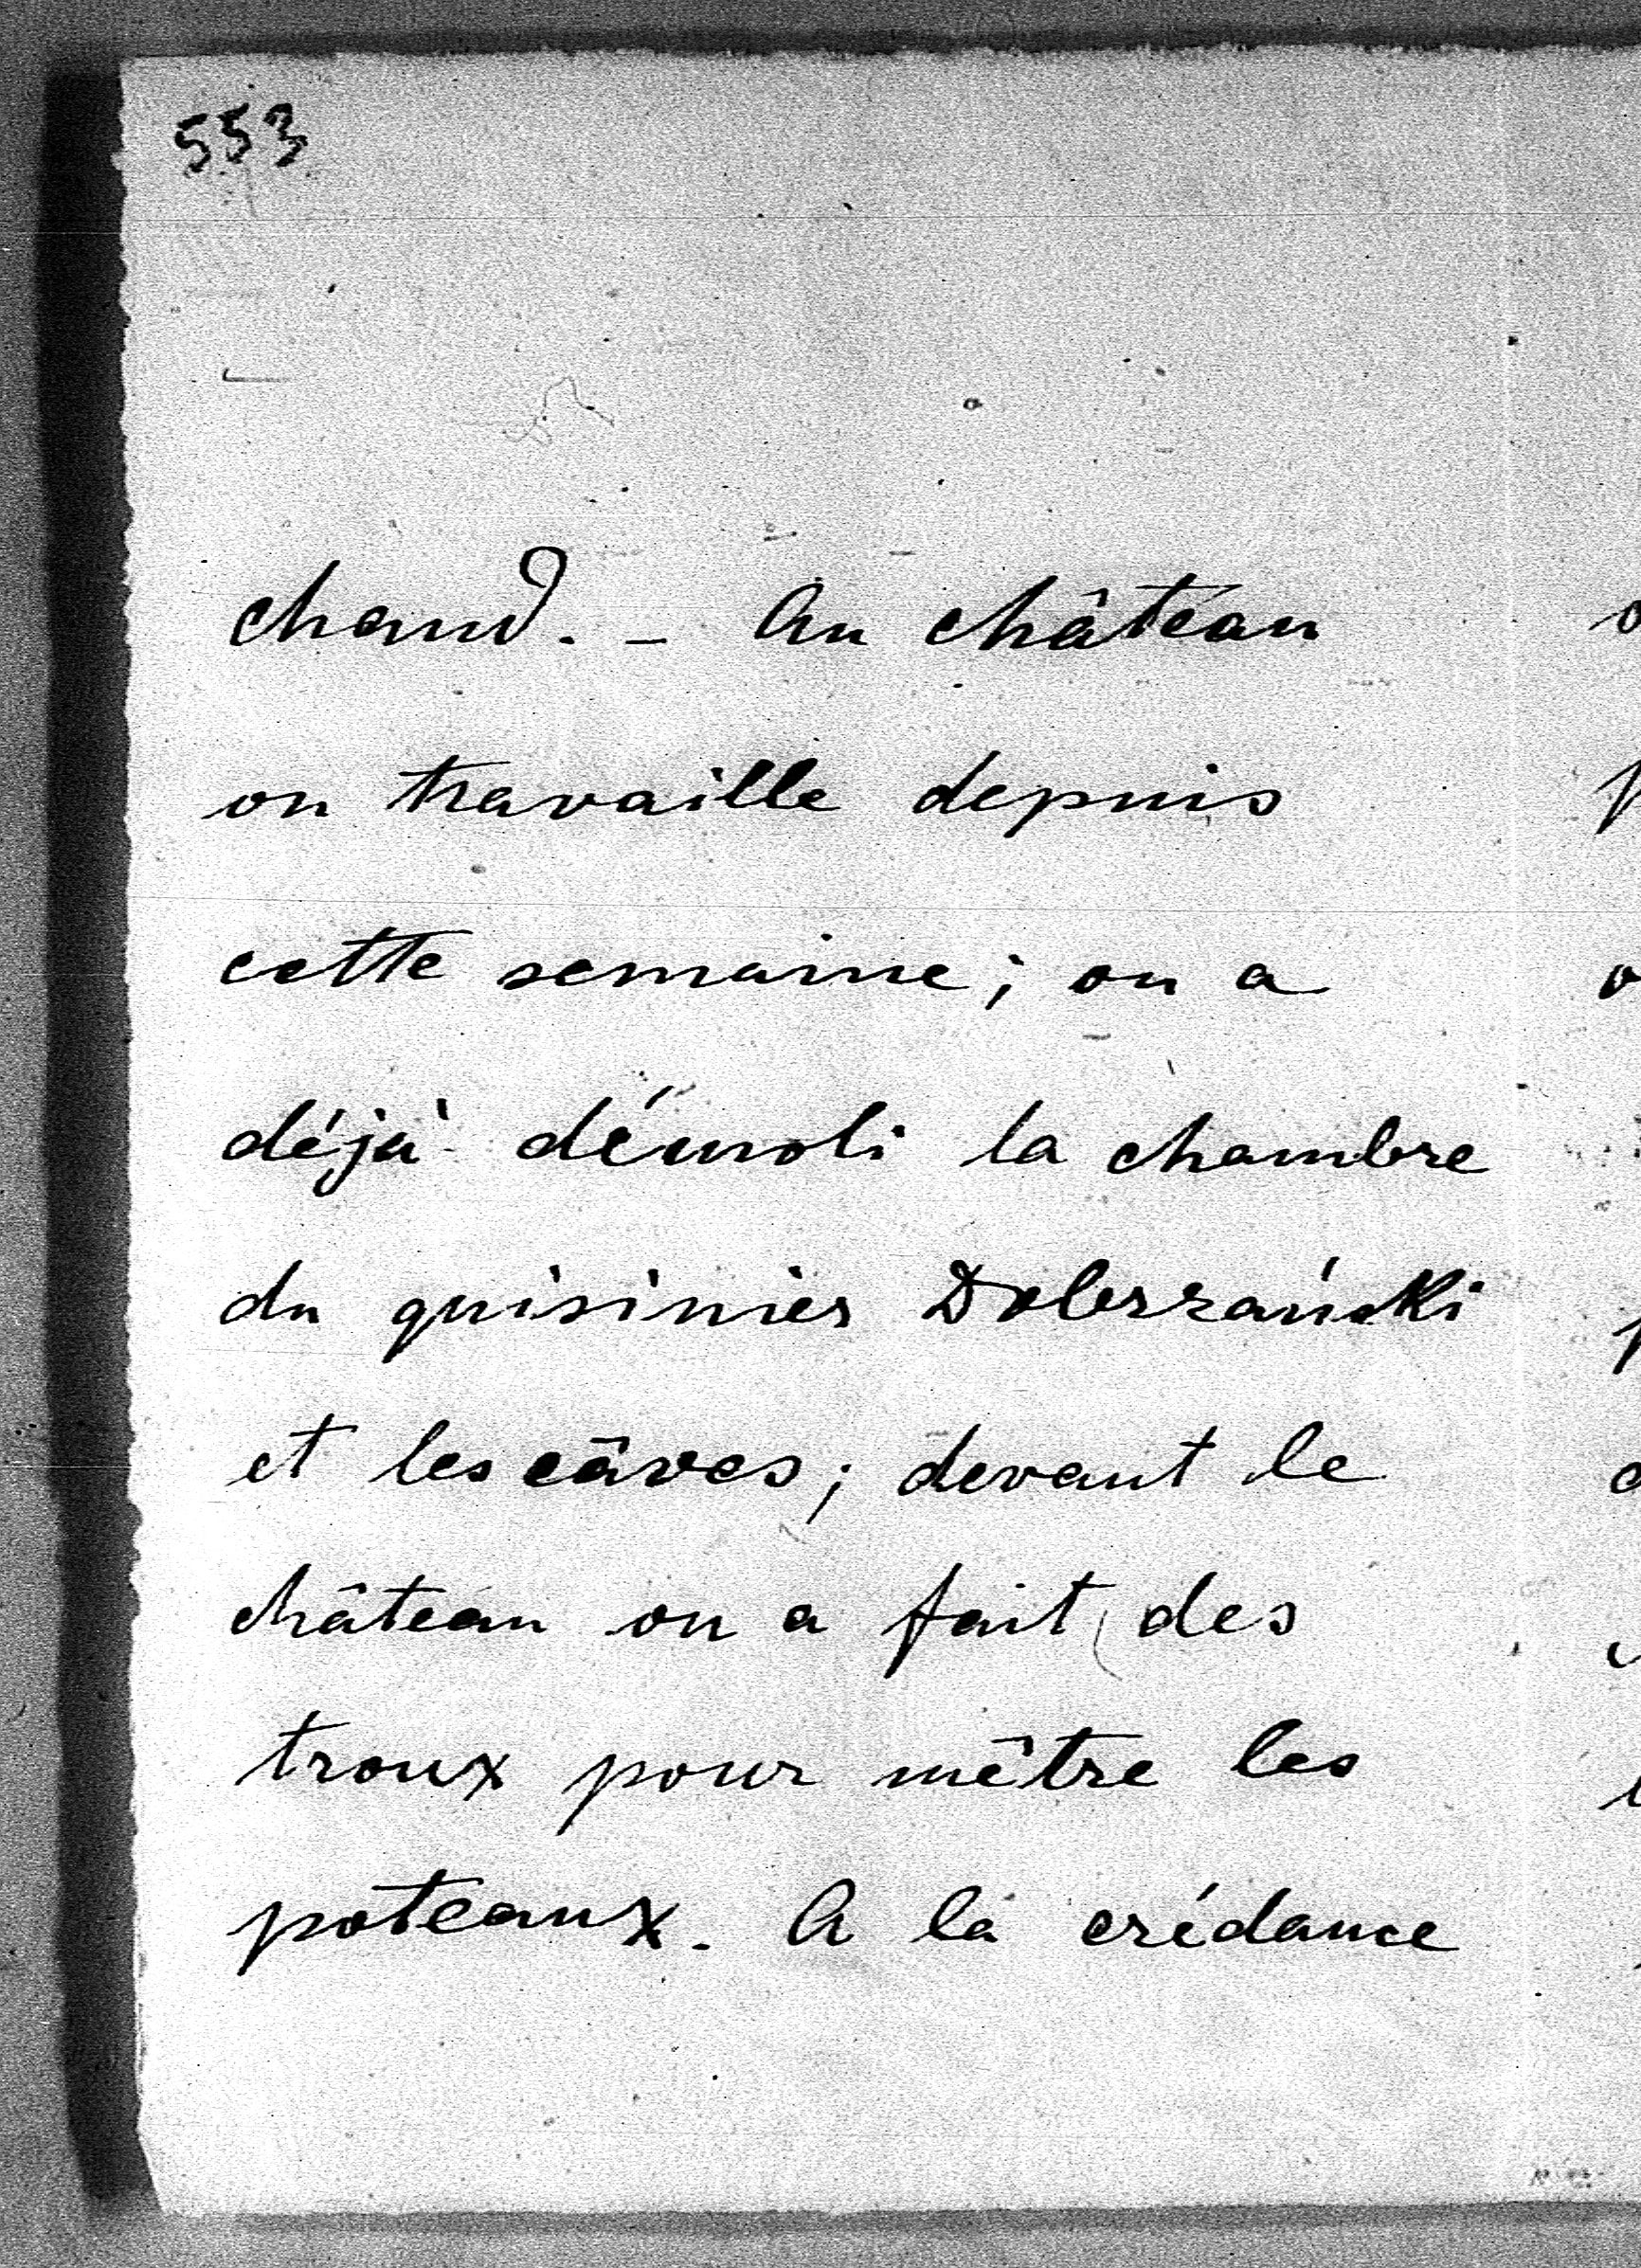 553
chaud. - Au château
on travaille depuis
cette semaine; on a
déjà démoli la chambre
du quisinier Dobrzański
et les câves; devant le
château on a fait des
troux pour mêtre les
poteaux. A la crédance